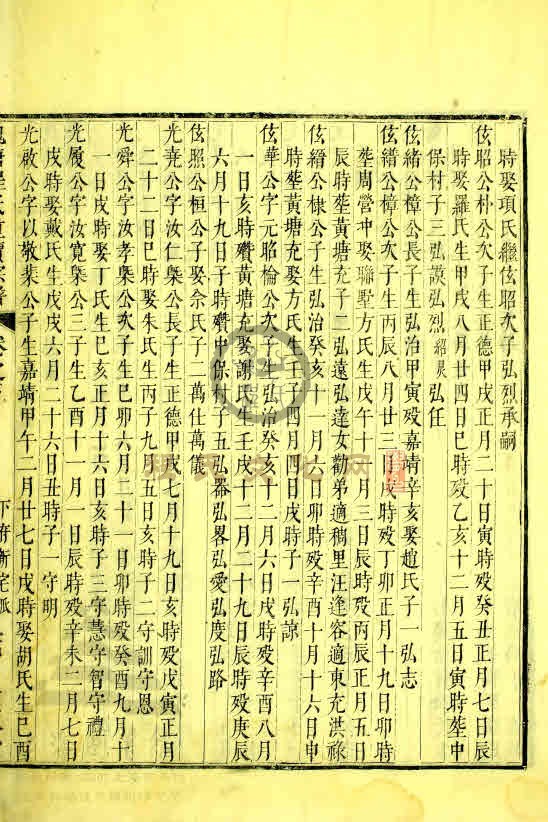 時娶項氏繼伭昭次子弘烈承嗣
伭昭公朴公次子生正德甲戌正月二十日寅時殁癸丑正月七日辰
時娶羅氏生甲戌八月廿四日巳時殁乙亥十二月五日寅時塟中
保村子三弘謨弘烈紹泉弘任
伭緒公樟公長子生弘治甲寅殁嘉靖辛亥娶趙氏子一弘志
伭縉公樟公次子生丙辰八月廿三日戌時殁丁卯正月十九日卯時
塟周營中娶聯墅方氏生戊午十二月三日辰時殁丙辰正月五日
辰時塟黃塘充子二弘遠弘達女勸弟適稠里汪逢容適東充洪祿
伭繒公棣公子生弘治癸亥十一月六日卯時殁辛酉十月十六日申
時塟黃塘充娶方氏生壬子四月四日戌時子一弘諒
伭華公字元昭棆公次子生弘治癸亥十二月六日戌時殁辛酉八月
一日亥時殯黃塘充娶謝氏生壬戌十二月二十九日辰時殁庚辰
六月十九日子時殯中保村子五弘器弘畧弘愛弘度弘路
伭照公桓公子娶佘氏子二萬仕萬儀
光尭公字汝仁㮣公長子生正德甲戌七月十九日亥時殁戊寅正月
二十二日巳時娶朱氏生丙子九月五日亥時子二守訓守恩
光舜公字汝孝㮣公次子生己卯六月二十一日卯時殁癸酉九月十
一日戌時娶丁氏生己亥正月十六日亥時子三守慧守智守禮
光履公字汝寛㮣公三子生乙酉十一月一日辰時殁辛未二月七日
戌時娶戴氏生戊戌六月二十六日丑時子一守明
光啟公字以敬棐公子生嘉靖甲午二月廿七日戌時娶胡氏生己酉